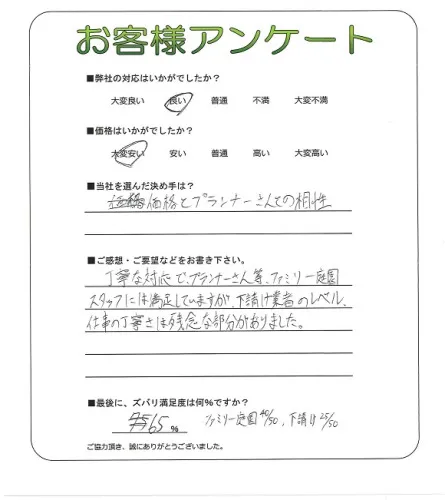 お客様アンケート
■弊社の対応はいかがでしたか?
大変良い 良い 普通 不満 大変不満
■価格はいかがでしたか?
大変安い 安い 普通 高い 大変高い
■当社を選んだ決め手は?
価格とプランナーさんとの相性
■ご感想・ご要望などをお書き下さい。
丁寧な対応で、プランナーさん等、ファミリー庭園
スタッフには満足していますが、下請け業者のレベル、
仕事の丁寧さは残念な部分がありました。
■最後に、ズバリ満足度は何%ですか?
65 % ファミリー庭園 40/50、下請け 25/50
ご協力頂き、誠にありがとうございました。